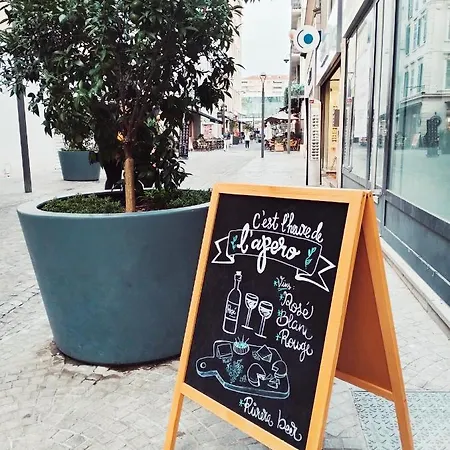 C'est l'heure de
l'apero
Vins:
Rosé
Blanc
Rouge
Rivière beer